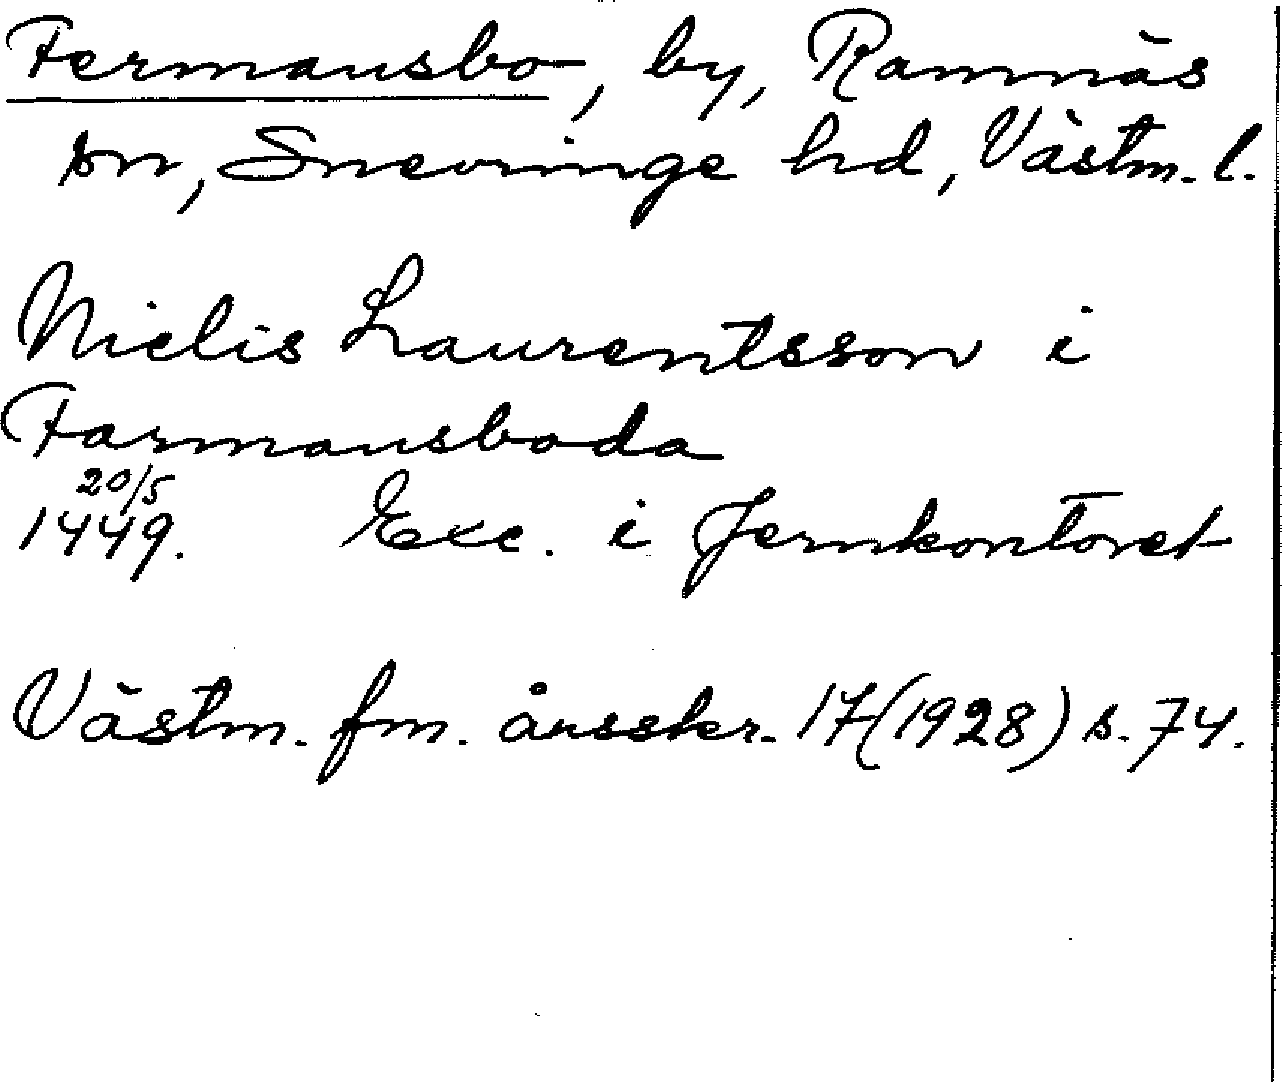 Fermansbo, by, Ramnäs
sn, Snevringe hd, Västm. l.
Nielis Laurentsson i
Farmansboda
20/5
1449. Exc. i Jernkontoret
Västm. fm. årsskr. 17 (1928) s. 74.